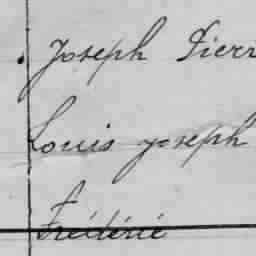 Joseph Pierr
Louis joseph
Frédéric